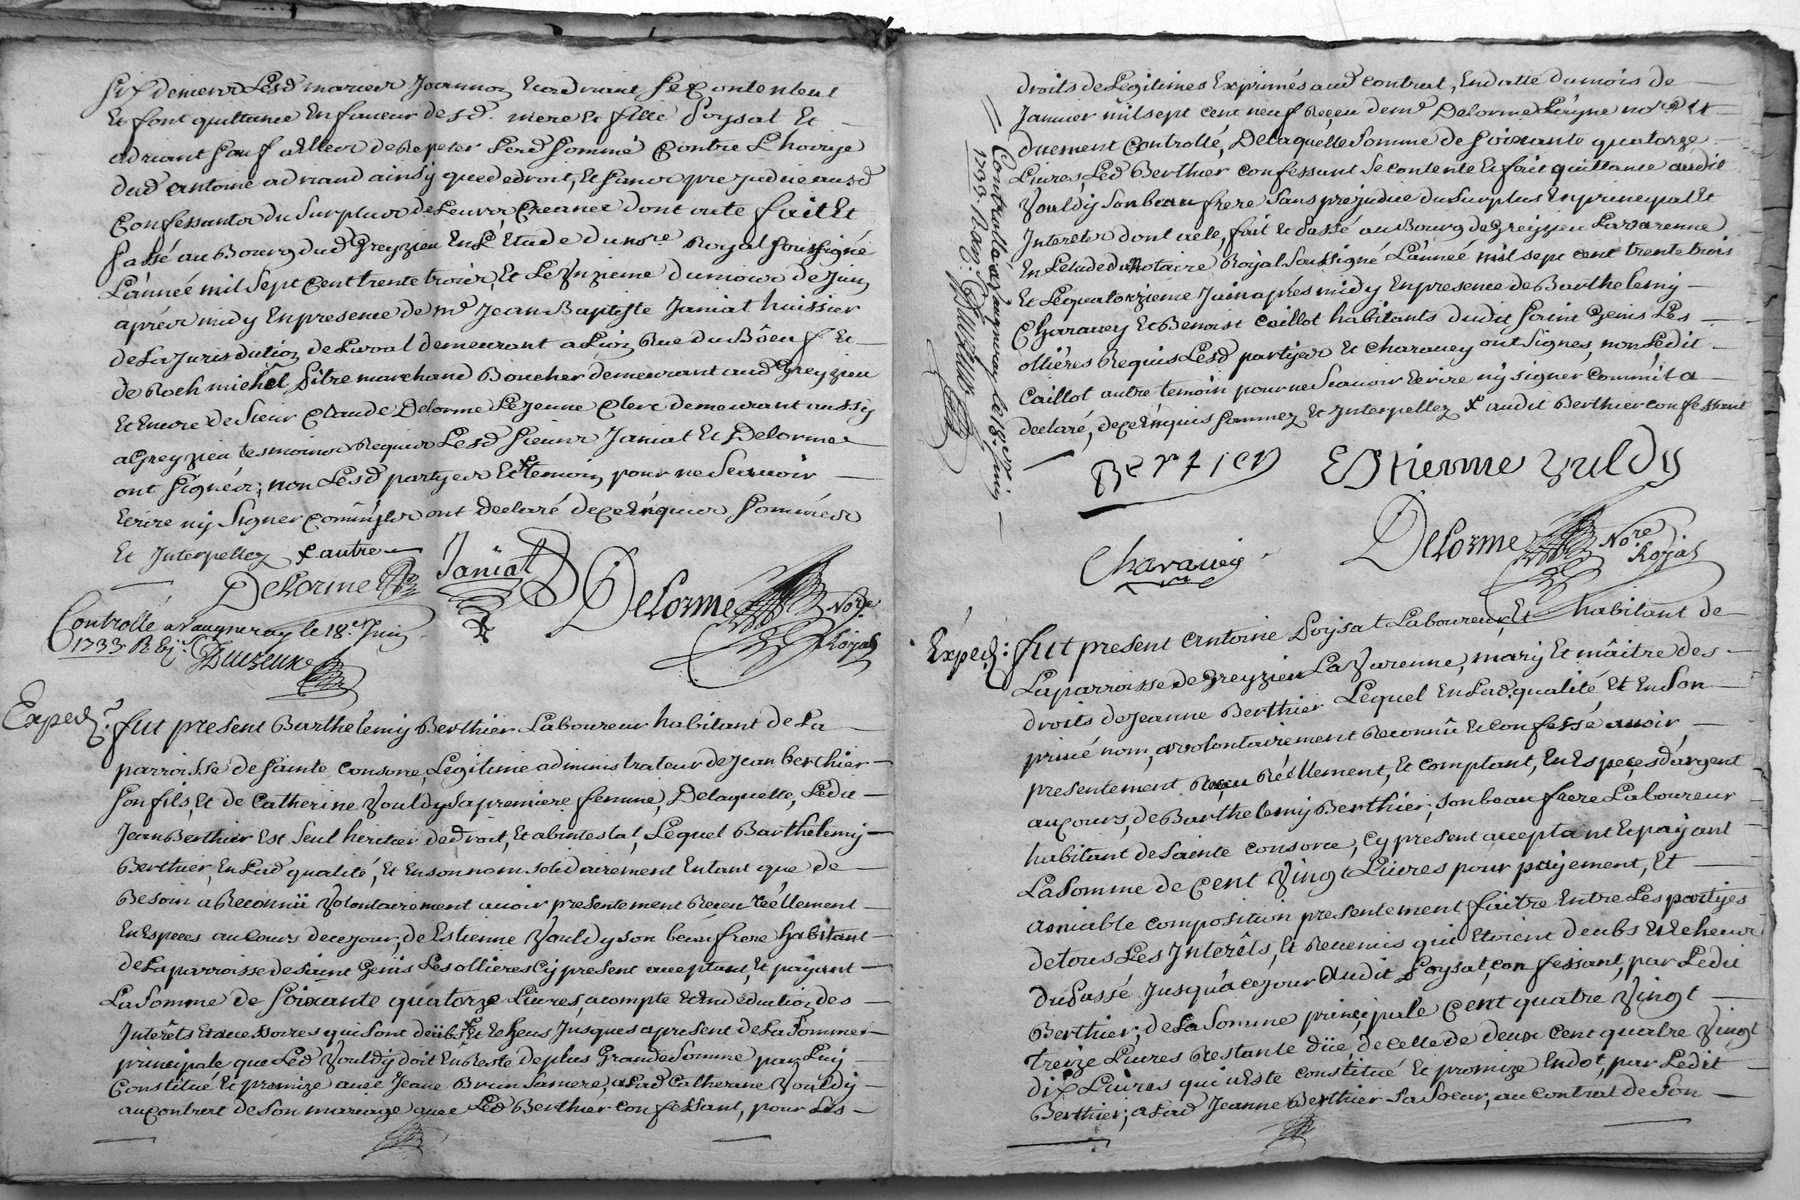 six deniers Lesd mariez Joannon Et adriant se Contentent
Et font quittance En faveur desd. mere Et fille Poysat Et
adriant sauf a Elles de Repeter Lesd somme Contre L'hoirye
dud antoine adriand ainsy que de droit, Et sans prejudice ausd
Confessantes du Surplus de Leurs Creances dont acte fait Et
Passé au Bourg dud Greyzieu En L'Etude du nore Royal soussigné
L'année mil sept Cent trente trois, Et Le Unzieme du mois de Juin
aprés midy En presence de me Jean Baptiste Janiat huissier
de La Jurisdiction de demeurant a Lion Rue du Bôeuf Et
de Roch michel pitre marchand Boucher demeurant aud Greyzieu
Et Encore de Sieur Claude Delorme Le jeune Clerc demeurant aussy
a Greyzieu tesmoins Requis Lesd sieurs Janiat Et Delorme
ont signés; non Lesd partyes Et + temoin pour ne Scavoir
Ecrire ny Signer Comm'ils ont declaré de ce Enquis sommées
Et Interpellez + autre
Delorme Janiat Delorme Nore Royal
Controllé a Vaugneray le 18e Juin
1733. R
Exped: fut present Barthelemy Berthier Laboureur habitant de La
parroisse de sainte consorce, Legitime administrateur de Jean berthier
son fils, Et de Catherine Vouldy sa premiere femme, De laquelle, Ledit
Jean Berthier Est seul heritier de droit, Et abintestat, Lequel Barthelemy
Berthier, En Lad qualité, Et En son nom solidairement Entant que de
Besoin a Reconnü Volontairement avoir presentement Receu réellement
En Especes au Cours de ce jour, de Estienne Vouldy son beau frere habitant
de La parroisse de saint Genis Les ollieres Cy present acceptant, Et payant
La Somme de soixante quatorze Livres, a compte Et En deduction des
Interêts Et accessoires qui sont deübs Et Echeus Jusques a present de La somme
principale que Led Vouldy doit En Resté de plus Grande Somme par Luy
Constitué Et promize avec Jeane Brun sa mere, a Lad Catherine Vouldy
au contrat de Son mariage avec Led Berthier confessant, pour Les
droits de Legitimes Exprimés aud contrat, En datte du mois de
Janvier mil sept cent neuf Receu de me Delorme nore Et
duement Controllé, De laquelle Somme de soixante quatorze
Livres, Led Berthier confessant se contente Et fait quittance audit
Vouldy son beau frere Sans prejudice du Surplus En principal Et
Interets dont acte, fait Et Passé au Bourg de Greyzieu La Varenne
En L'etude du Notaire Royal Soussigné L'année mil sept cent trente trois
Et Le quatorzieme Juin aprés midy En presence de Barthelemy
Charavey Et Benoist Caillot habitants dudit saint Genis Les
ollières Requis Lesd partyes Et Charavey ont Signes, non Ledit
Caillot autre temoin pour ne Scavoir Ecrire ny signer comm'il a
declaré, de ce Enquis sommez Et Interpellez + audit Berthier confessant
Controllé a Vaugneray le 18e Juin
1733.
Bertier Estienne Vuldy
Charavey Delorme Nore Royal
Exped: fut present Antoine Poysat Laboureur, Et habitant de
La parroisse de Greyzieu La Varenne, mary Et maître des
droits de Jeanne Berthier Lequel En Lad. qualité Et En son
privé nom, a volontairement Reconnû Et confessé avoir
presentement Receu Réellement, Et comptant, En Especes d'argent
au cours, de Barthelemy Berthier, son beau frere Laboureur
habitant de Sainte consorce, Cy present acceptant Et payant
La Somme de Cent Vingt Livres pour payement, Et
amiable composition presentement faitre Entre Les partyes
de tous Les Interêts, Et Revenus qui Etoient deubs Et Echeus
du Passé Jusqu'a ce jour Audit Poysat, confessant, par Ledit
Berthier; de La Somme principale Cent quatre Vingt
treize Livres Restante düe, de celle de deux cent quatre Vingt
dix Livres qui a Esté constitué Et promize En dot, par Ledit
Berthier, a Lad Jeanne Berthier Sa Soeur, au Contrat de Son